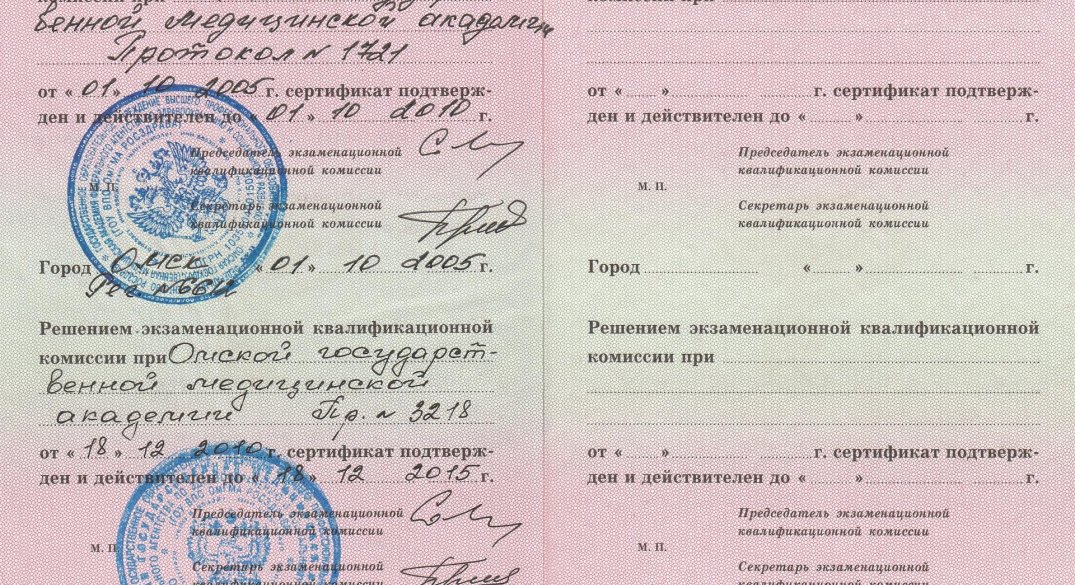 комиссии при
венной медицинской академии
Протокол N 1721
от « 01 » 10 2005 г. сертификат подтверж-
ден и действителен до « 01 » 10 2010 г.
Председатель экзаменационной
квалификационной комиссии
М. П.
Секретарь экзаменационной
квалификационной комиссии
Город Омск « 01 » 10 2005 г.
Рег N
Решением экзаменационной квалификационной
комиссии при Омской государст-
венной медицинской
академии Пр. N 3218
от « 18 » 12 2010 г. сертификат подтверж-
ден и действителен до « 18 » 12 2015 г.
Председатель экзаменационной
квалификационной комиссии
М. П.
Секретарь экзаменационной
квалификационной комиссии
комиссии при
от « » г. сертификат подтверж-
ден и действителен до « » г.
Председатель экзаменационной
квалификационной комиссии
М. П.
Секретарь экзаменационной
квалификационной комиссии
Город « » г.
Решением экзаменационной квалификационной
комиссии при
от « » г. сертификат подтверж-
ден и действителен до « » г.
Председатель экзаменационной
квалификационной комиссии
М. П.
Секретарь экзаменационной
квалификационной комиссии